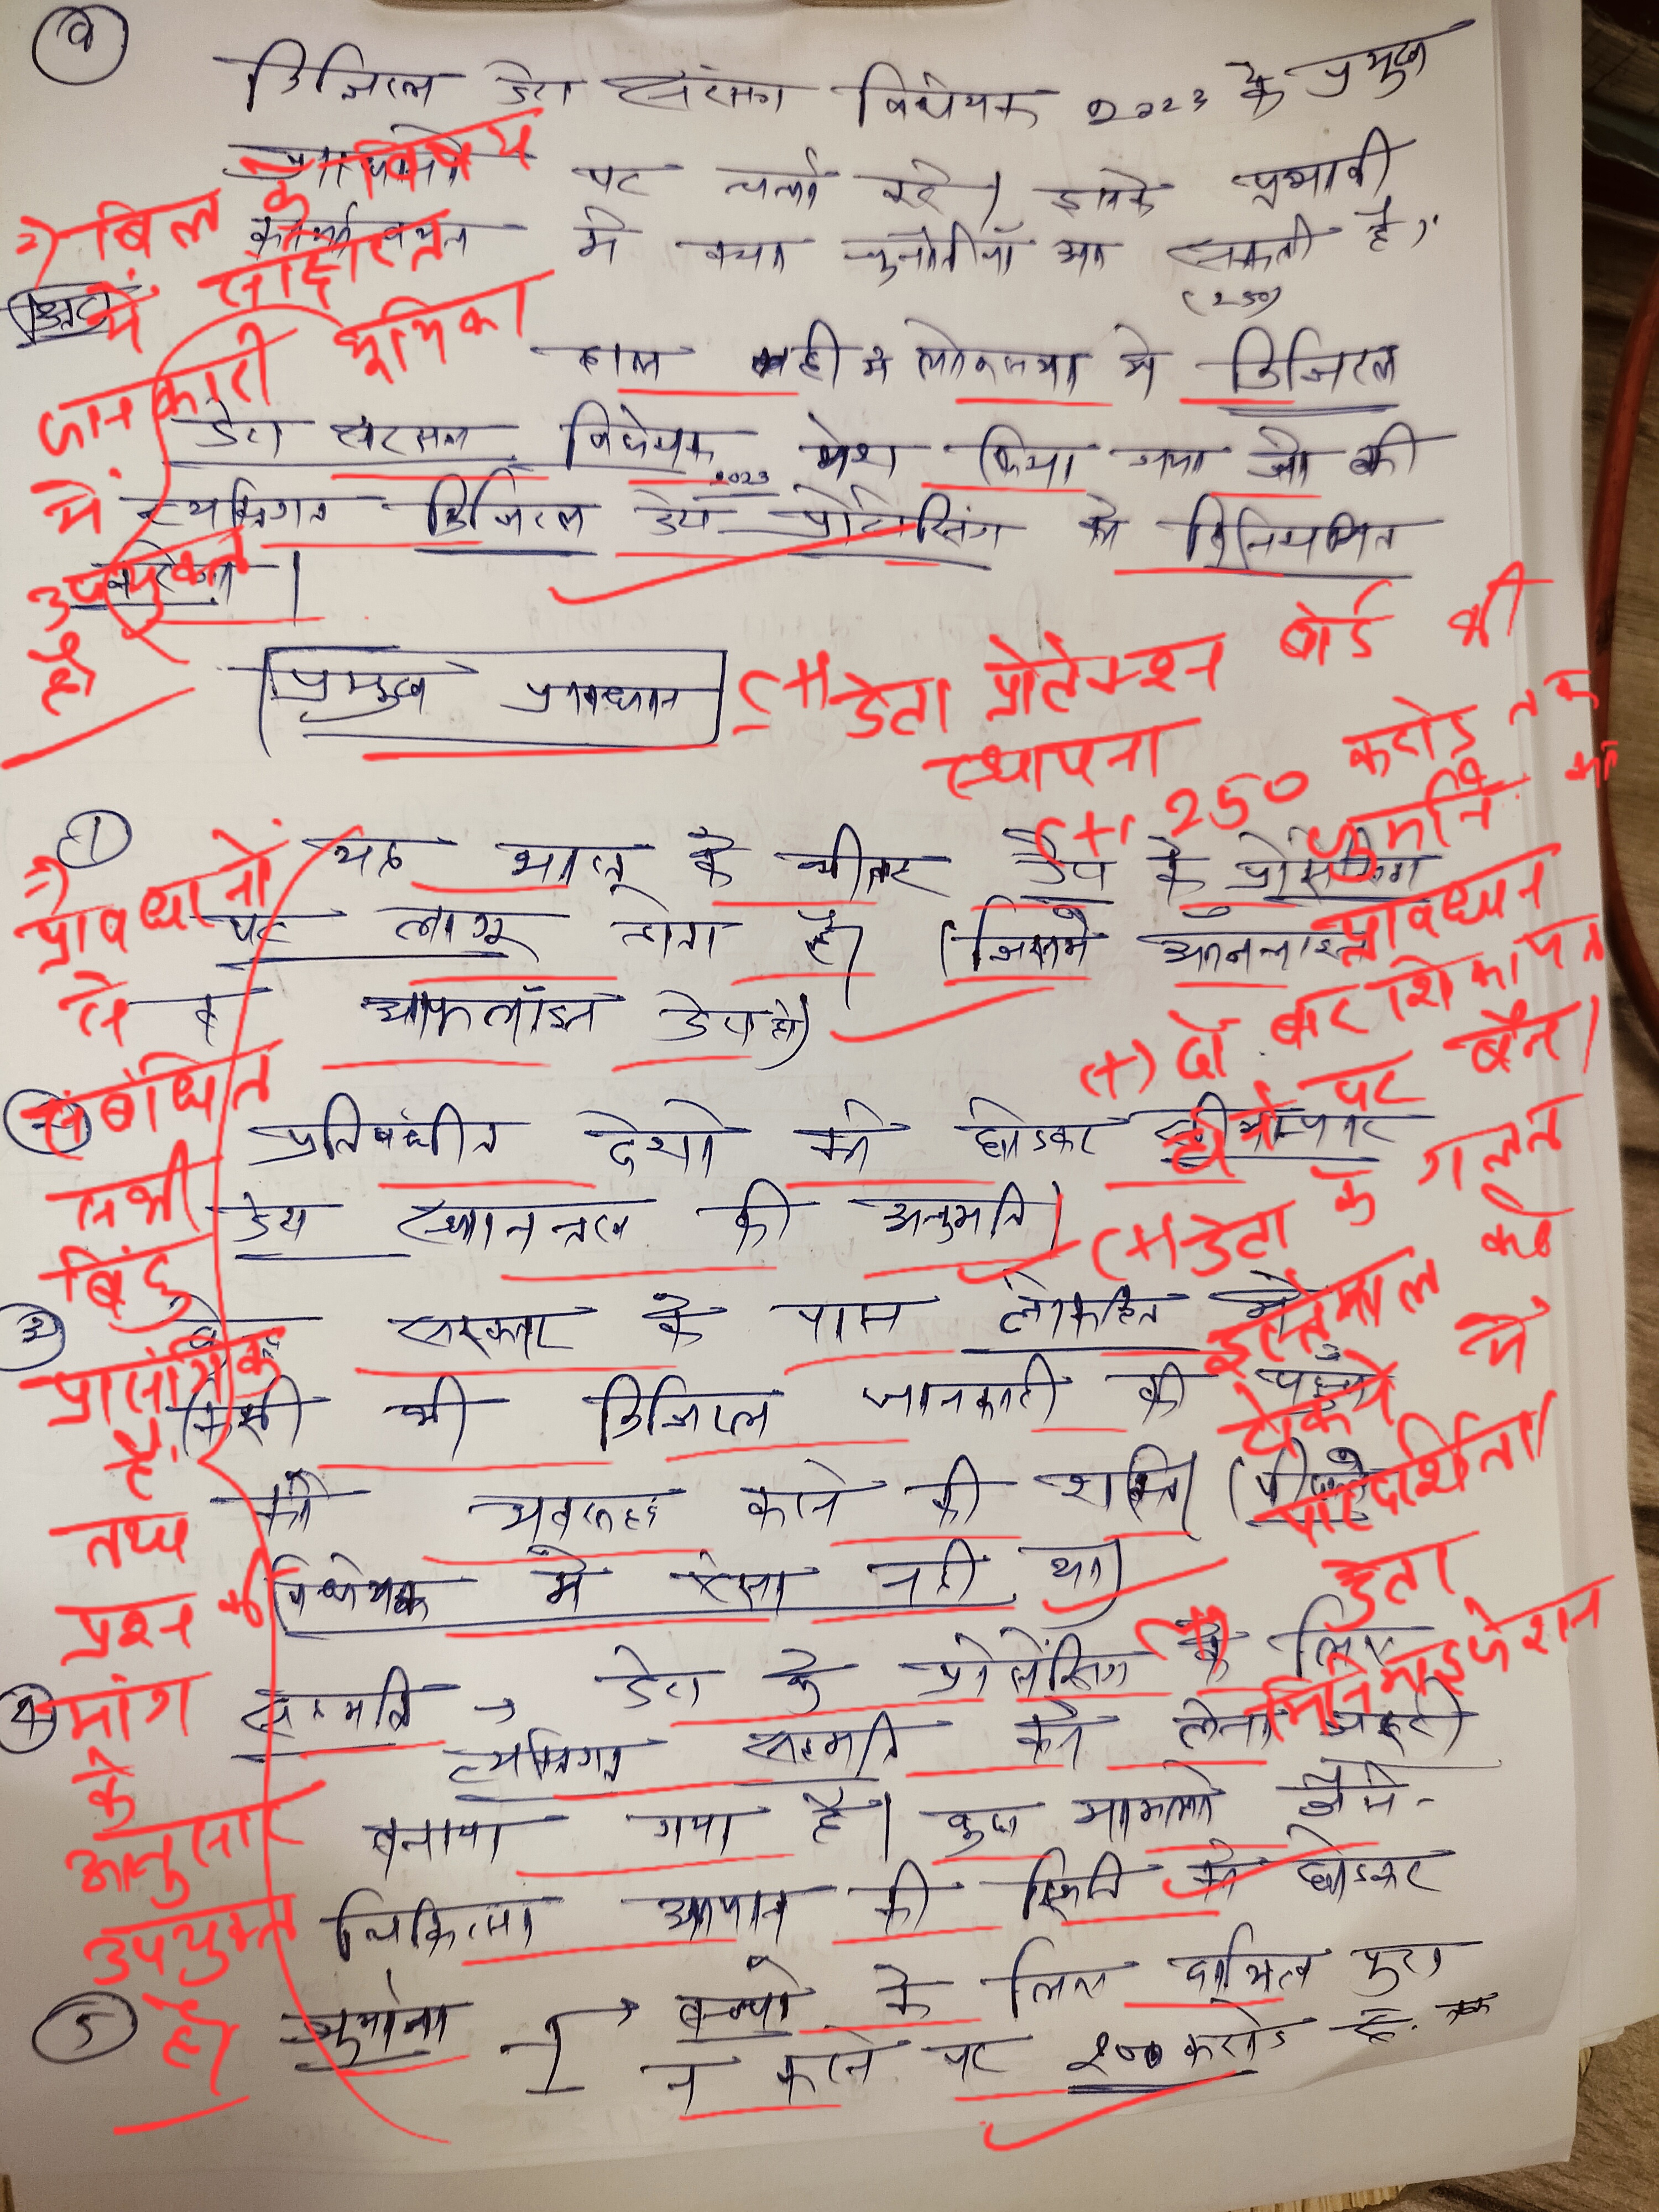 डिजिटल डेटा संरक्षण विधेयक 2023 के प्रमुख
प्रावधानों पर चर्चा करे। इसके प्रभावी
कार्यान्वयन में क्या चुनौतीयाँ आ सकती है।
(250)
उत्तर
हाल ही मे लोकसभा मे डिजिटल
डेटा संरक्षण विधेयक 2023 पेश किया गया जो की
व्यक्तिगत डिजिटल डेटा प्रोसेसिंग को विनियमित
करेगा।
=) बिल के विषय
में साधारण
जानकारी भूमिका
में
उपयुक्त
है।
प्रमुख प्रावधान
(+) डेटा प्रोटेक्शन बोर्ड की
स्थापना
(+) 250 करोड़ तक
जुर्माने का
प्रावधान
(+) दो बार शिकायत
होने पर बैन।
(+) डेटा के गलत
इस्तेमाल को
रोकने में
पारदर्शिता।
(+) डेटा
मिनिमाइजेशन
① यह भारत के भीतर डेटा के प्रोसेसिंग
पर लागू होता है। (जिसमे ऑनलाइन
व ऑफलॉइन डेटा हो)
② प्रतिबंधीत देशो को छोडकर सीमापार
डेटा स्थानान्तरण की अनुमति।
③ सरकार के पास लोकहित मे
किसी भी डिजिटल जानकारी की पहुँच
को अवरूद्ध करने की शक्ति। (पीछले
विधेयक मे ऐसा नही था)
④ सहमति → डेटा के प्रोसेसिंग के लिए
व्यक्तिगत सहमति को लेना जरूरी
बनाया गया है। कुछ मामलो जैसे-
चिकित्सा आपात की स्थिति को छोडकर
⑤ जुर्माना → बच्चो के लिए दायित्व पुरा
न करने पर 200 करोड रू. तक
=)
प्रावधानों
से
संबंधित
सभी
बिंदु
प्रासंगिक
हैं
तथा
प्रश्न की
मांग
के
अनुसार
उपयुक्त
है।